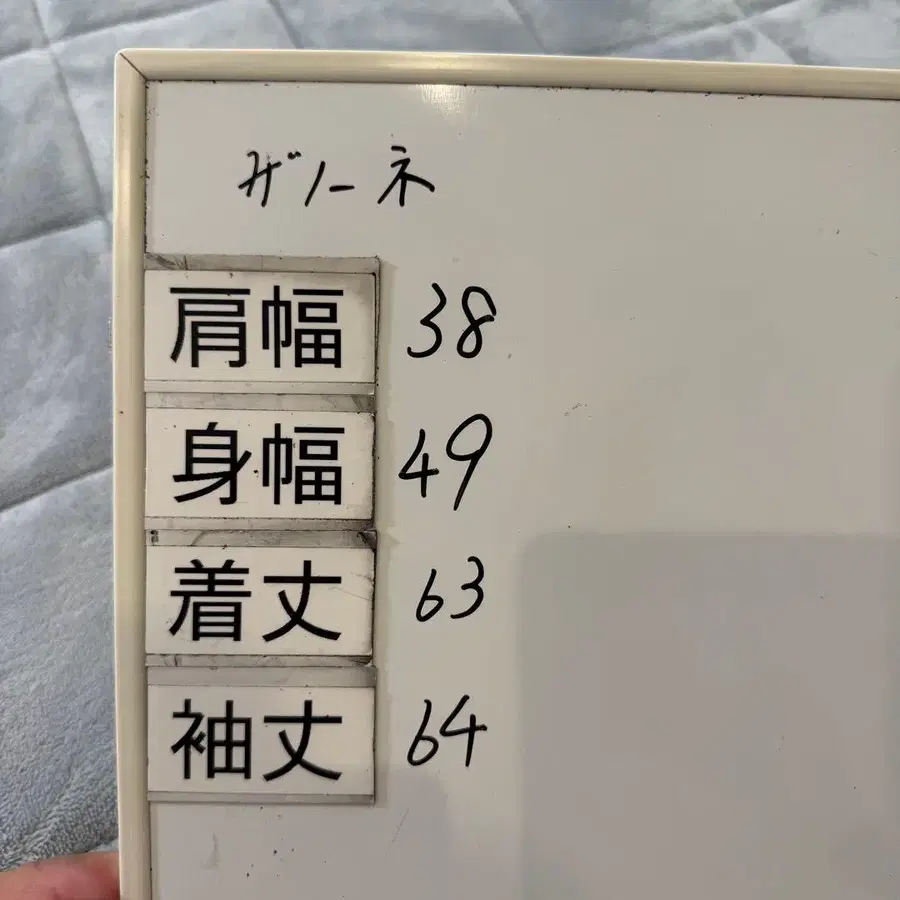 ザノーネ
肩幅 38
身幅 49
着丈 63
袖丈 64